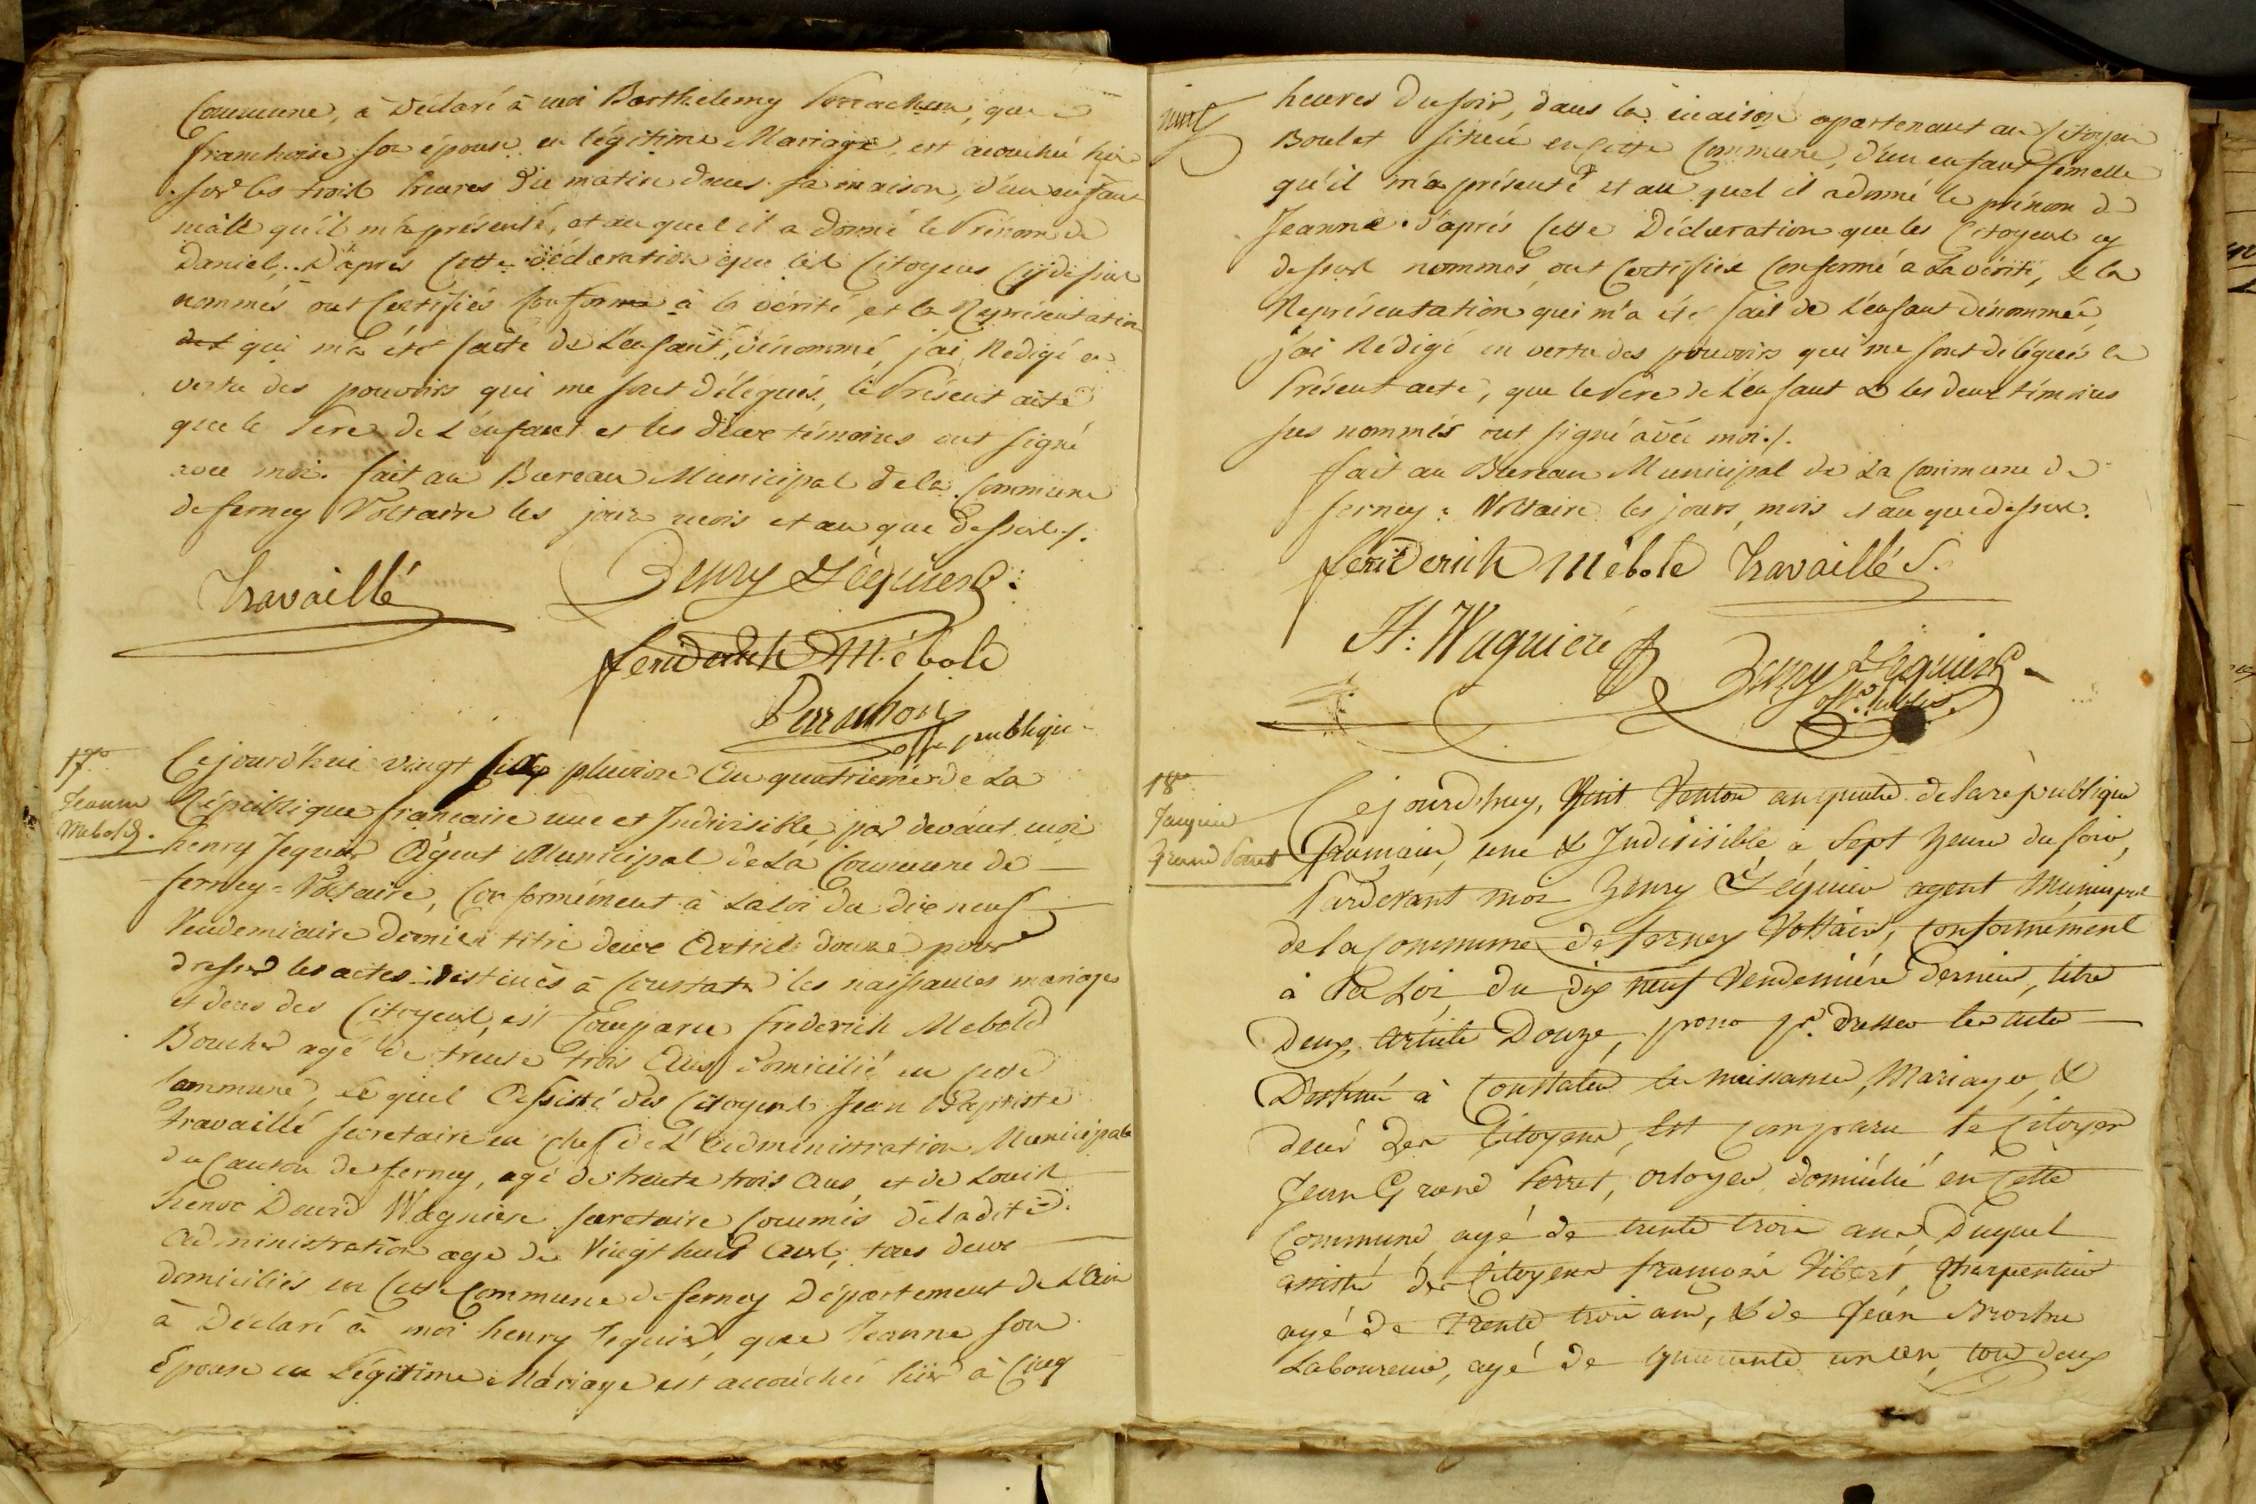 Commune, à Déclaré à moi Barthelemy Perrachon, que
franchoise son épouse en légitime Mariage, est acouchée hier
sur les trois heures du matin dans sa maison, d'un enfant
mâle qu'il m'a présenté, et au quel il a donné le Prénom de
Daniel. D'après Cette déclaration que les Citoyens Cy dessus
nommés ont Certifiés Conforme à la vérité, et la Représentation
qui m'a été faite de L'enfant dénommé, j'ai Rédigé en
vertu des pouvoirs qui me sont Délégués, le Présent acte
que le Pere de L'enfant et les deux témoins ont signé
avec moi. fait au Bureau Municipal de la Commune
de ferney Voltaire les jour mois et an que dessus./.
Travaillé
henry Jéquier
frederich Mébold
Perrachon
off publique
17e
Jeanne
Mebold.
Cejourd'hui vingt pluviose an quatrieme de La
République francaise une et Indivisible, par devant moi
henry Jequier Agent Municipal de La Commune de
ferney=Voltaire, Conformément à La loi du dix neuf
Vendemiaire dernier titre deux Article douze pour
dresser les actes destinés à Constater les naissances mariages
et deces des Citoyens, est Comparu frederich Mebold
Boucher agé de trente trois Ans Domicilié en cette
Commune, Le quel Assisté des Citoyens Jean Baptiste
Travaillé secretaire en chef de L'Administration Municipale
du Canton de ferney, agé de trente trois Ans, et de Louis
henoc David Wagniere secretaire Commis de ladite
Administration agé de Vingt huit Ans, tous deux
domiciliés en Cette Commune de ferney Département de L'Ain
à Déclaré à moi henry Jequier, que Jeanne son
Epouse en Légitime Mariage est acouchée hier à Cinq
heures du soir, dans la maison apartenant au Citoyen
Boulet située en Cette Commune, d'un enfant femelle
qu'il m'a présenté et au quel il a donné le prénom de
Jeanne. D'après Cette Déclaration que les Citoyens cy
dessus nommés ont Certifiée Conforme a La vérité, & la
Représentation qui m'a été fait de L'enfant dénommée,
j'ai Rédigé en vertu des pouvoirs qui me sont délégués le
Présent acte, que le Pere de L'enfant & les deux témoins
sus nommés ont signé avec moi./.
fait au Bureau Municipal de La Commune de
ferney=Voltaire les jours, mois et an que dessus.
frederich Mébold Travaillé
H: Wagniere
henry Jéquier
off. public.
18e
Grand Perret
Cejourdhuy, huit Ventose an quatre de la république
francaise, une & Indivisible, a Sept heure du soir,
Pardevant moi henry Jéquier agent Municipal
de la Commune de ferney Voltaire, conformément
à La Loi du dix neuf Vendemiére dernier, titre
Deux, Article Douze, pr. dresser les actes
Destiné à Constater les naissances, Mariages, &
decès des Citoyens, Est Comparu le Citoyen
Jean Grand Perret, domicilié en Cette
Commune, agé de trente trois ans, Duquel
assisté des Citoyens françois Vibert, Charpentier
agé de Trente trois ans, & de Jean
Laboureur, agé de quarante un an, tous deux